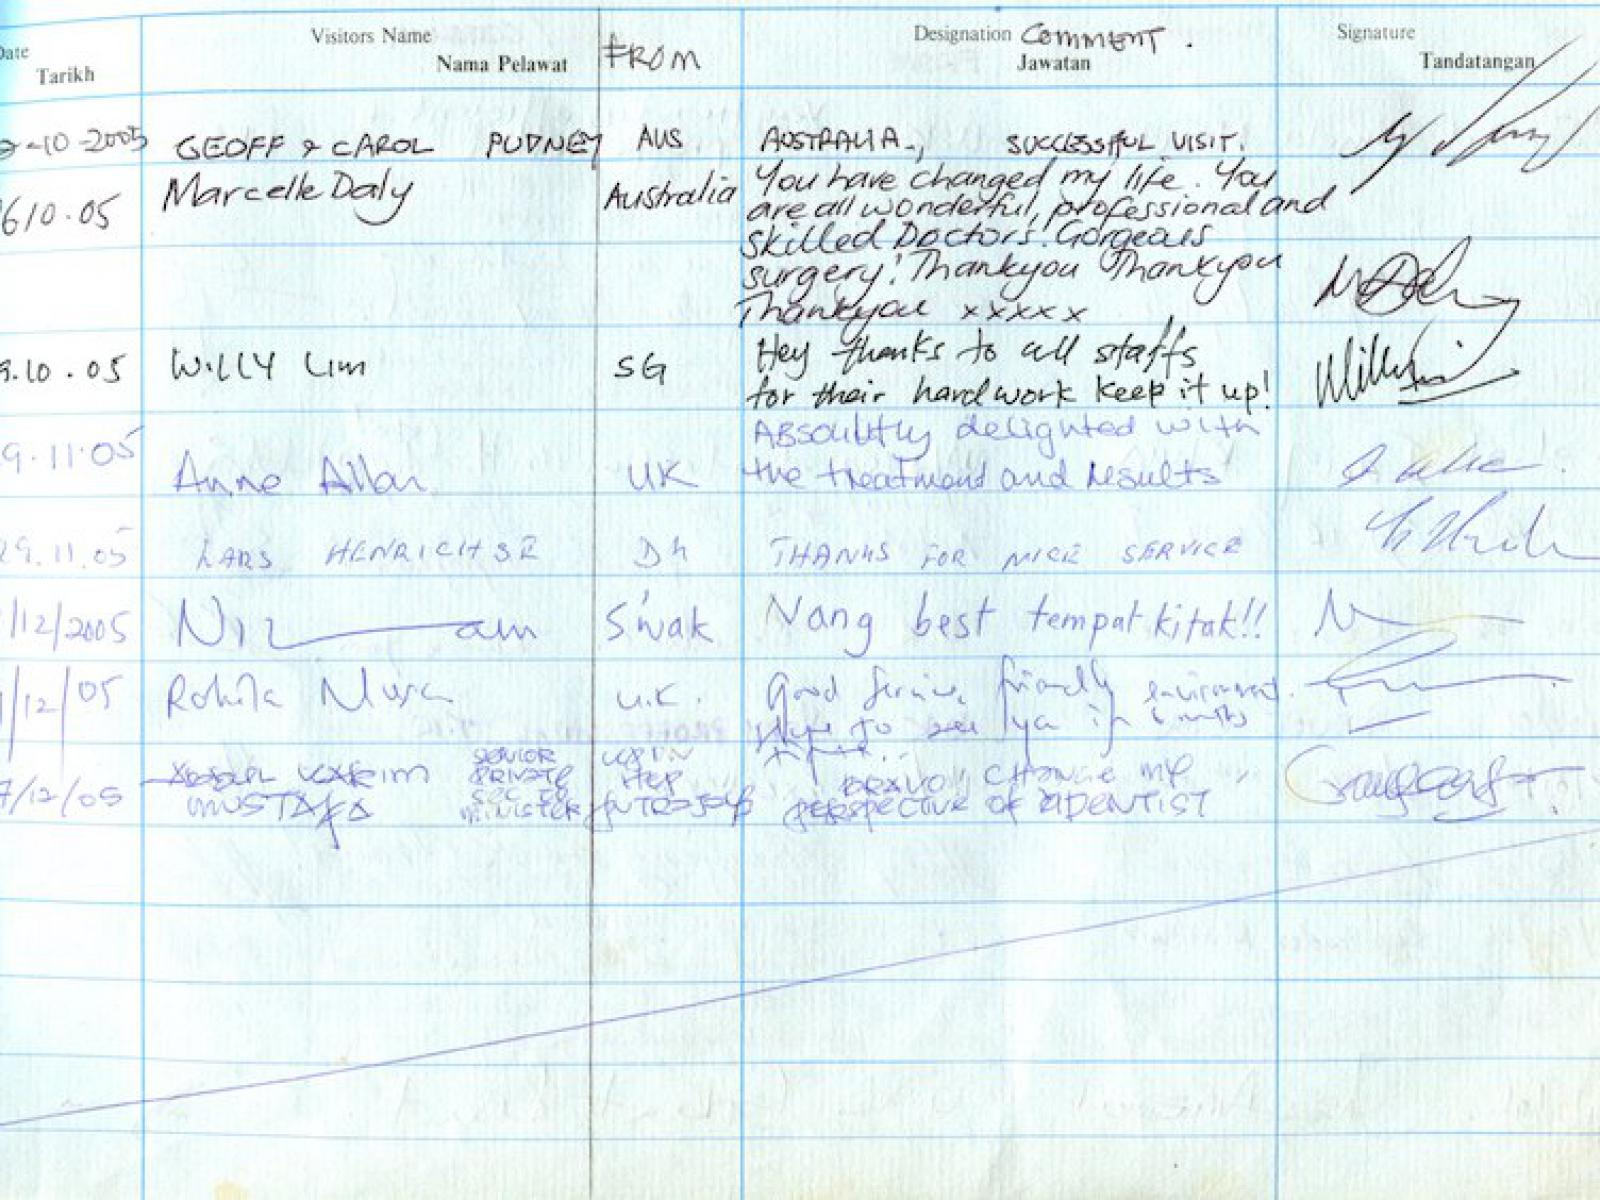 Date Visitors Name FROM Designation COMMENT. Signature
Tarikh Nama Pelawat Jawatan Tandatangan
-10-2005 GEOFF & CAROL PUDNEY AUS AUSTRALIA., SUCCESSFUL VISIT.
610.05 Marcelle Daly Australia You have changed my life. You
are all wonderful, professional and
skilled Doctors! Gorgeous
surgery! Thankyou Thankyou
Thankyou xxxxx
9.10.05 WILLY Lim SG Hey thanks to all staffs
for their hardwork keep it up!
9.11.05 Anne Allan UK ABsolutly delighted with
the treatment and results
29.11.05 LARS DK THANKS FOR NICE SERVICE
/12/2005 Niz am S'wak Nang best tempat kitak!!
/12/05 Rohila Musa U.K. Good Service, friendly environment.
Hope to see ya in 6 mnths
7/12/05 SENIOR PRIVATE SEC TO MINISTER BRAVO, CHANGE MY
MUSTAFA PERSPECTIVE OF A DENTIST